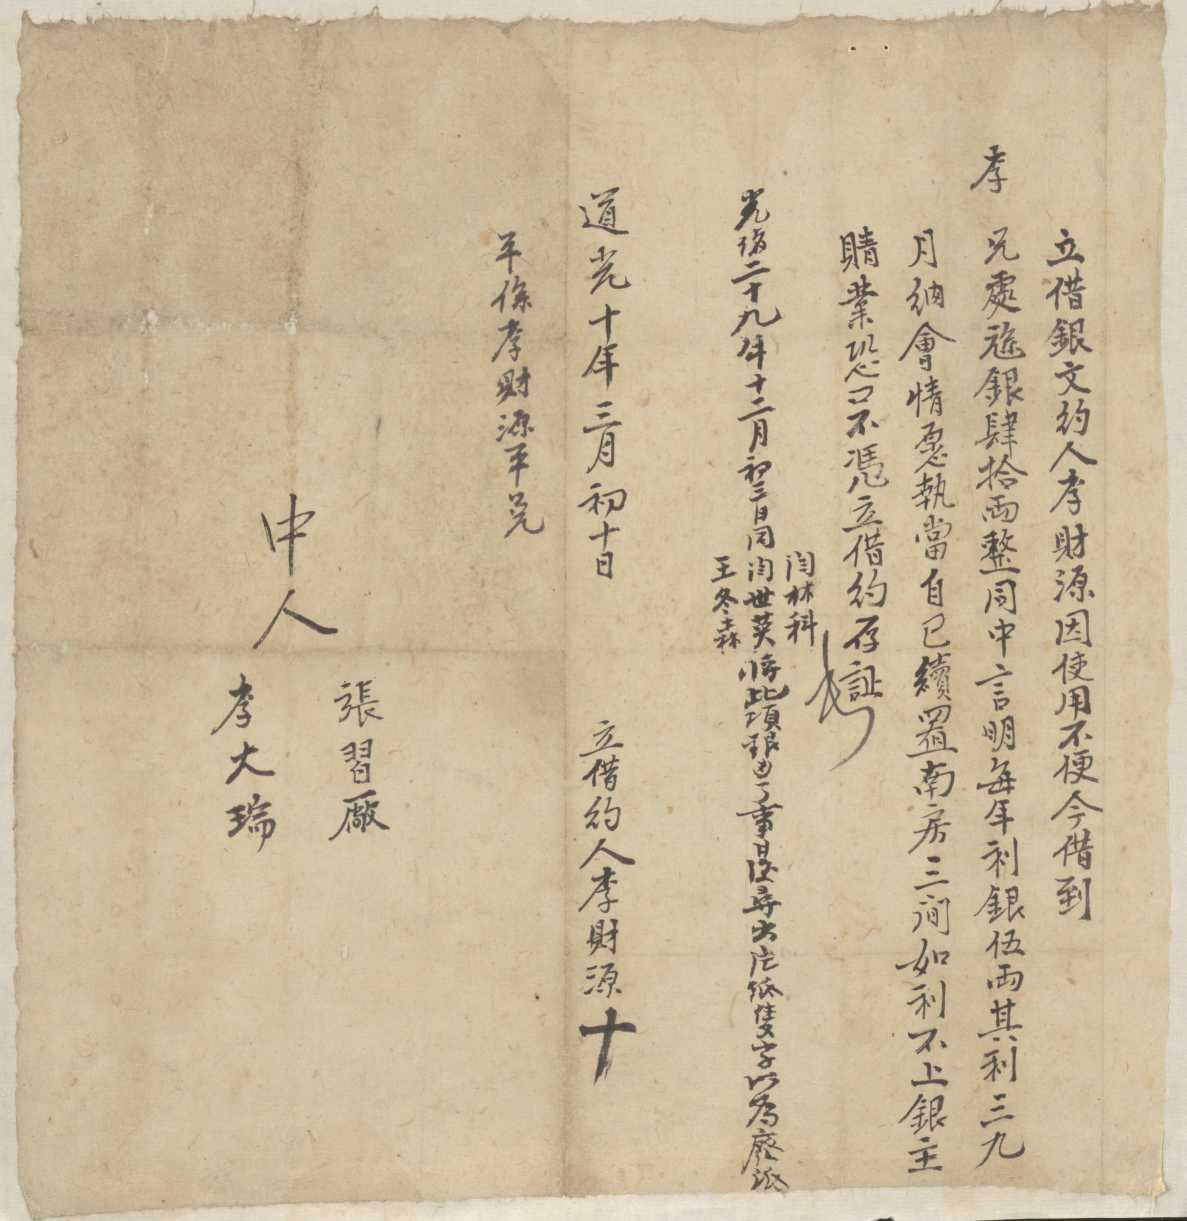 立借銀文約人李財源因使用不便今借到
李
兄處
銀肆拾両整同中言明每年利銀伍両其利三九
月納會情愿執當自己續置南房三间如利不上銀主
賭業恐口不憑立借約存証
光緒二十九年十二月初三日同
闫林科
闫世英
王冬森
將此項銀
了事日後尋出片紙隻字以為廢紙
道光十年三月初十日
立借約人李財源十
平係李財源平兑
中人
張習廠
李大瑞